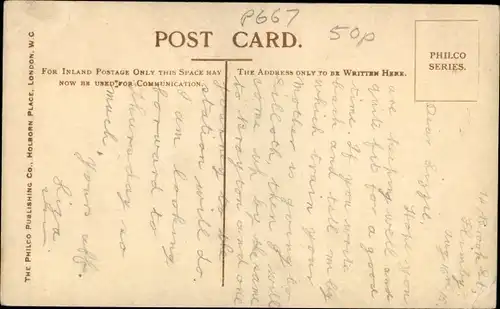 P667
50p
POST CARD.
FOR INLAND POSTAGE ONLY THIS SPACE MAY
NOW BE USED FOR COMMUNICATION.
THE ADDRESS ONLY TO BE WRITTEN HERE.
PHILCO
SERIES.
THE PHILCO PUBLISHING CO., HOLBORN PLACE, LONDON, W.C.
14
Dear Lizzie,
Hope you
are keeping well and
quite fit for a good
time. If you write
back and tell me by
which train your
mother is going to
Silloth then I will
come up by the same
to and one
to the
station will do.
I am looking
forward to
Thursday so
much.
Yours aff.